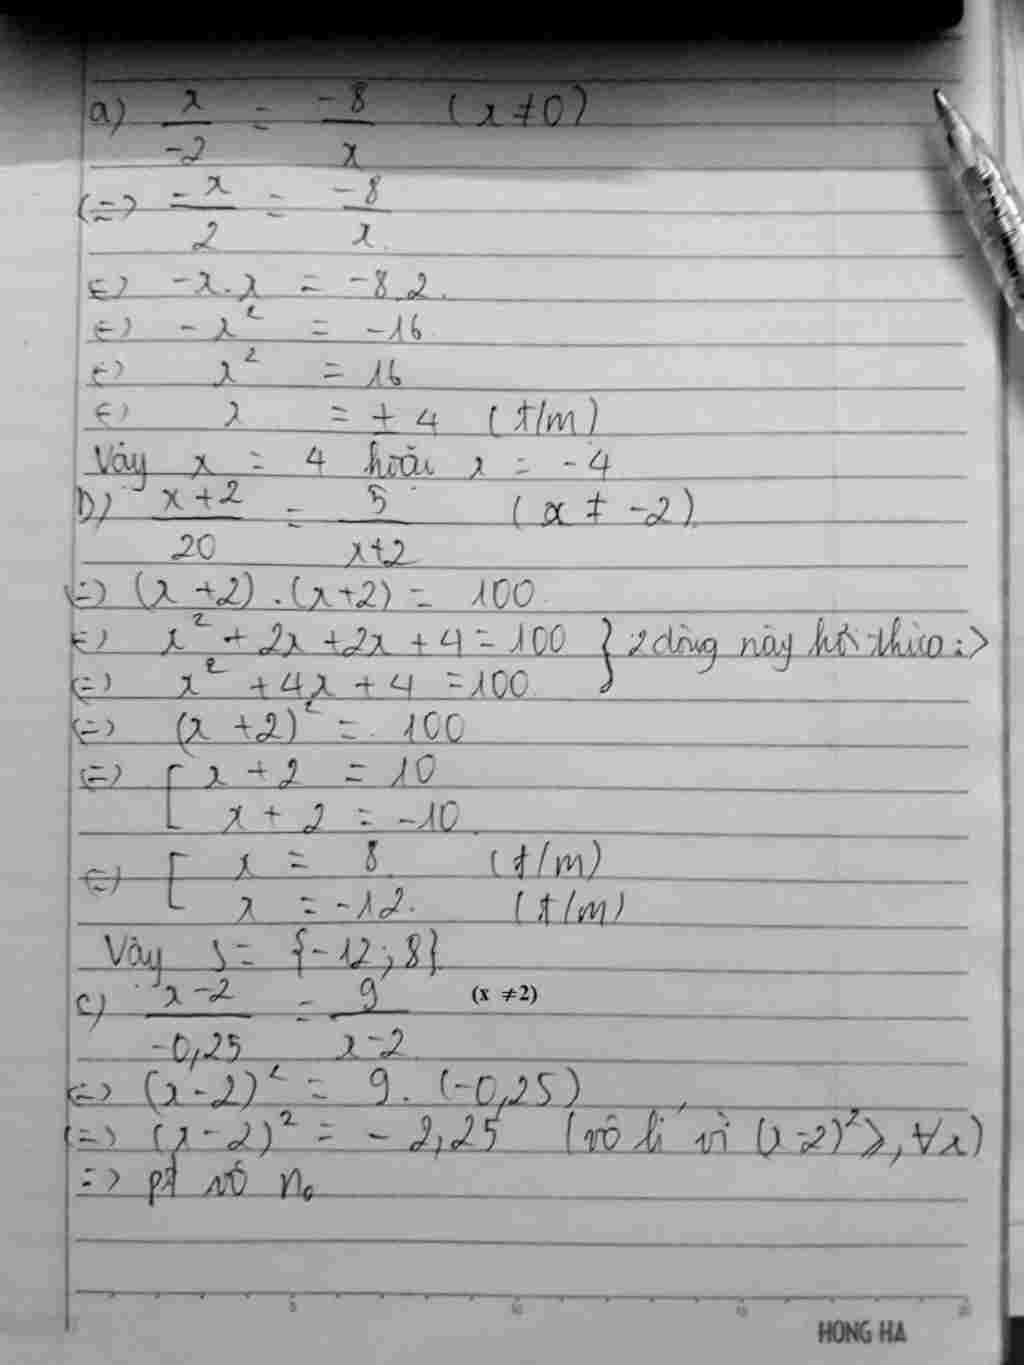 a) x/-2 = -8/x (x ≠ 0)
(=) -x/2 = -8/x
(=) -x.x = -8.2.
(=) -x² = -16
(=) x² = 16
(=) x = ± 4 (t/m)
Vậy x = 4 hoặc x = -4
b) x+2/20 = 5/x+2 (x ≠ -2).
(=) (x+2).(x+2) = 100
(=) x² + 2x + 2x + 4 = 100 } 2 dòng này hơi thừa :>
(=) x² + 4x + 4 = 100
(=) (x+2)² = 100
(=) [ x + 2 = 10
x + 2 = -10
(=) [ x = 8 (t/m)
x = -12. (t/m)
Vậy S = {-12; 8}
c) x-2/-0,25 = 9/x-2 (x ≠2)
(=) (x-2)² = 9.(-0,25)
(=) (x-2)² = -2,25 (vô lí vì (x-2)² ≥, ∀x)
=> pt vô no
5 10 15 20
HONG HA